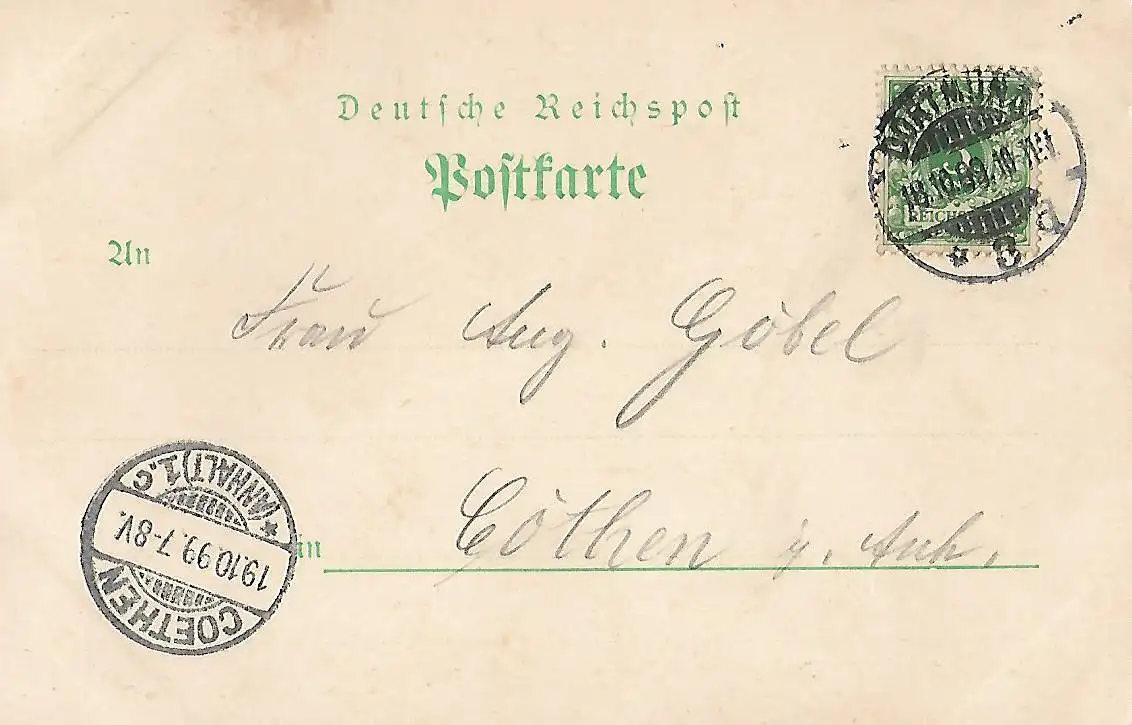 Deutsche Reichspost
Postkarte
DORTMUND
18.10.99.
REICHSPOST
An
Frau Aug. Göbel
in Cöthen i. Anh.
COETHEN
19.10.99.7-8V.
(ANHALT) 1.c